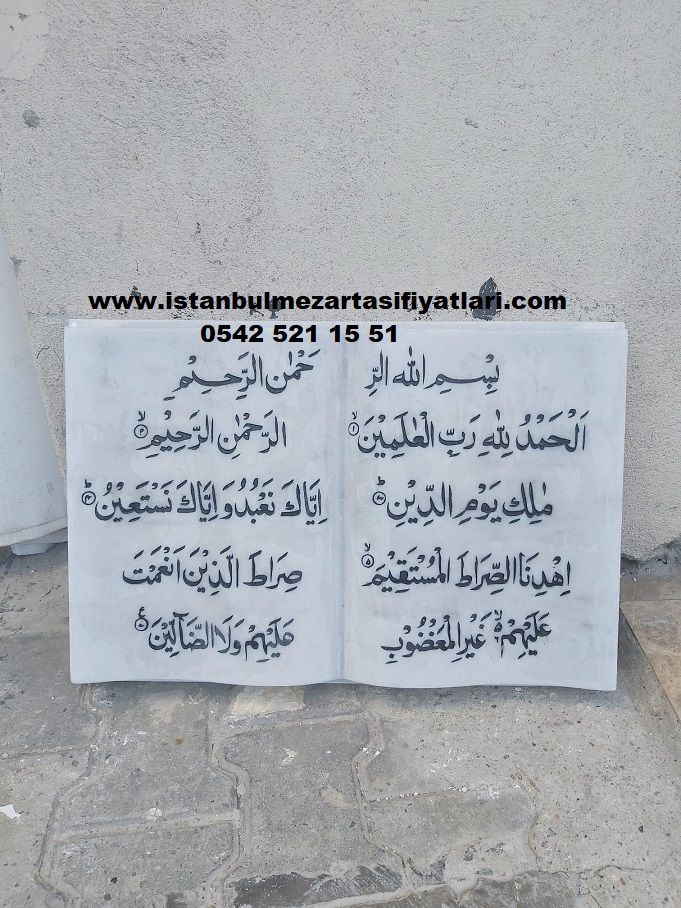 www.istanbulmezartasifiyatlari.com
0542 521 15 51
بِسْمِ اللهِ الرَّحْمٰنِ الرَّحِيْمِ
اَلْحَمْدُ لِلّٰهِ رَبِّ الْعٰلَمِيْنَ ۙ﴿۱﴾ الرَّحْمٰنِ الرَّحِيْمِ ۙ﴿۲﴾
مٰلِكِ يَوْمِ الدِّيْنِ ؕ اِيَّاكَ نَعْبُدُ وَاِيَّاكَ نَسْتَعِيْنُ ؕ
اِهْدِنَا الصِّرَاطَ الْمُسْتَقِيْمَ ۙ﴿۵﴾ صِرَاطَ الَّذِيْنَ اَنْعَمْتَ
عَلَيْهِمْ ۙ غَيْرِ الْمَغْضُوْبِ عَلَيْهِمْ وَلَا الضَّآلِّيْنَ